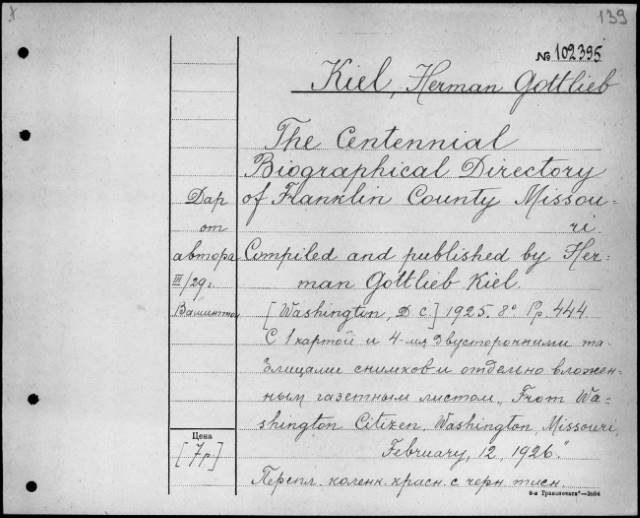 8
139
№ 102395
Kiel, Herman Gottlieb
The Centennial
Biographical Directory
of Franklin County Missou-
ri.
Compiled and published by Her-
man Gottlieb Kiel.
[Washington, D C.] 1925. 8° Pp. 444
С 1 картой и 4-мя двусторонними та-
блицами снимков и отдельно вложен-
ным газетным листом „From Wa-
shington Citizen, Washington, Missouri,
February, 12, 1926."
Перепл. коленк. красн. с черн. тисн.
Дар
от
автора
III/29г.
Вашингтон
Цена
[7р]